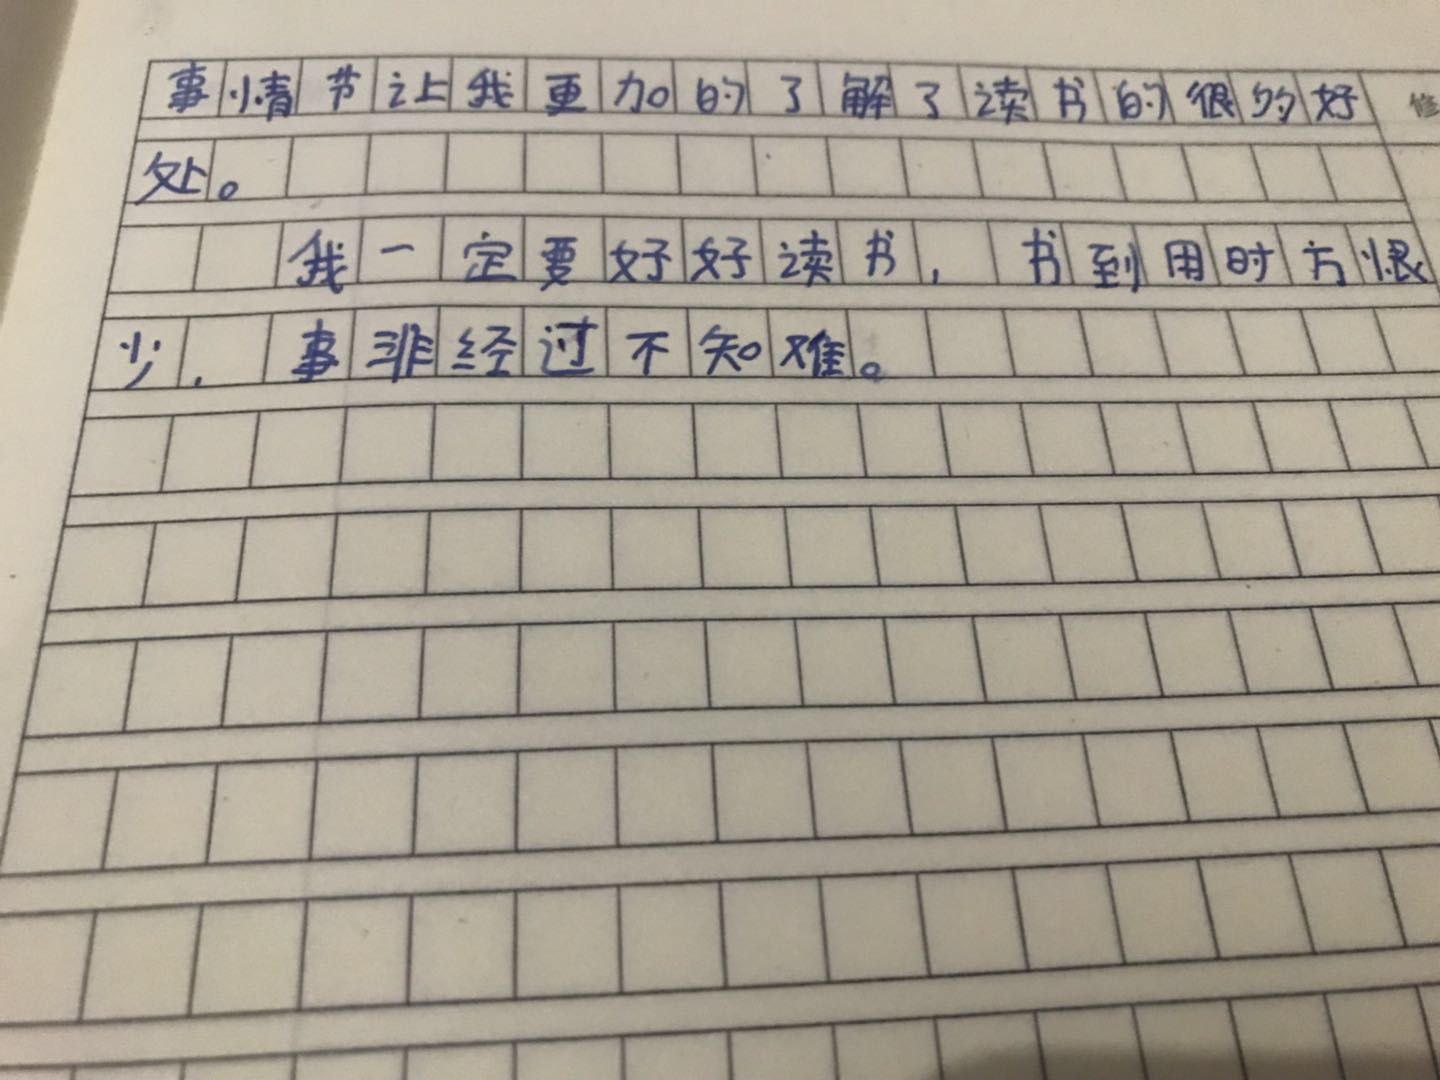 事情节让我更加的了解了读书的很的好
处。
我一定要好好读书，书到用时方恨
少，事非经过不知难。
修